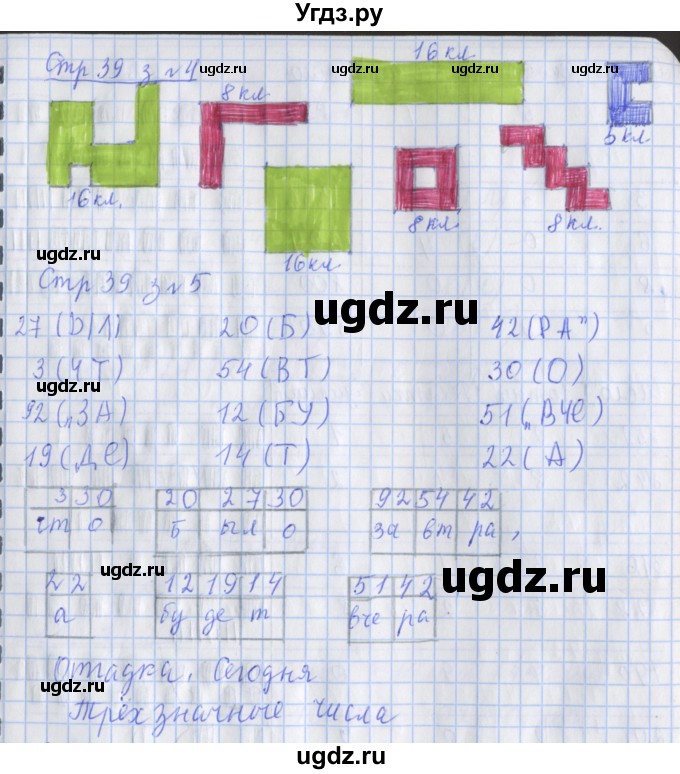 Угдз.ру
Стр 39 з №4
ugdz.ru ugdz.ru ugdz.ru
16 кл.
8 кл
5 кл
16 кл.
8 кл
8 кл.
ugdz.ru
16 кл
Стр 39 з №5
ugdz.ru
27 (ЫЛ) 20 (Б) 42 (РА")
3 (ЧТ) 54 (ВТ) 30 (О)
ugdz.ru ugdz.ru ugdz.ru
92 („ЗА) 12 (БУ) 51 („ВЧЕ)
19 (ДЕ) 14 (Т) 22 (А)
3 30 20 27 30 92 54 42
чт о б ыл о за вт ра,
ugdz.ru
22 12 19 14 51 42
ugdz.ru
а бу де т вче ра
Отгадка. Сегодня
ugdz.ru ugdz.ru ugdz.ru
Трёхзначные числа
ugdz.ru